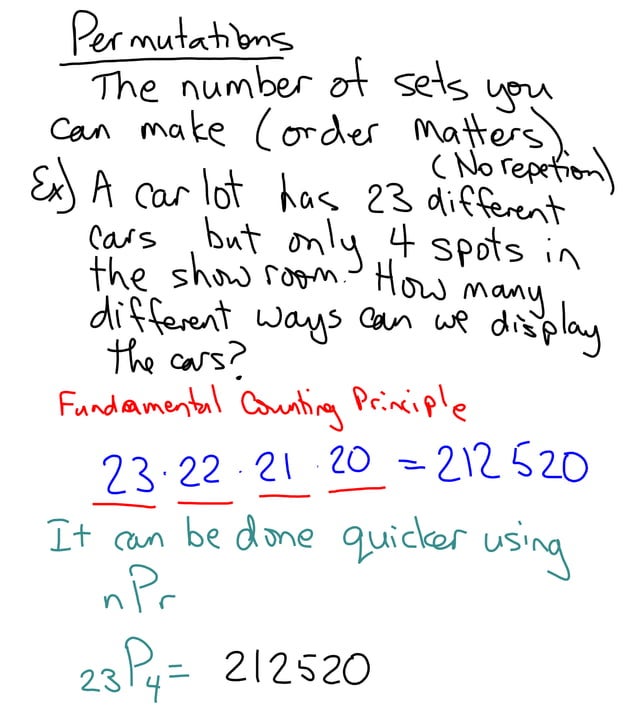 Permutations
The number of sets you
can make (order matters).
(No repetion)
Ex) A car lot has 23 different
cars but only 4 spots in
the show room. How many
different ways can we display
the cars?
Fundamental Counting Principle
23 · 22 · 21 · 20 = 212 520
It can be done quicker using
nPr
23P4 = 212520